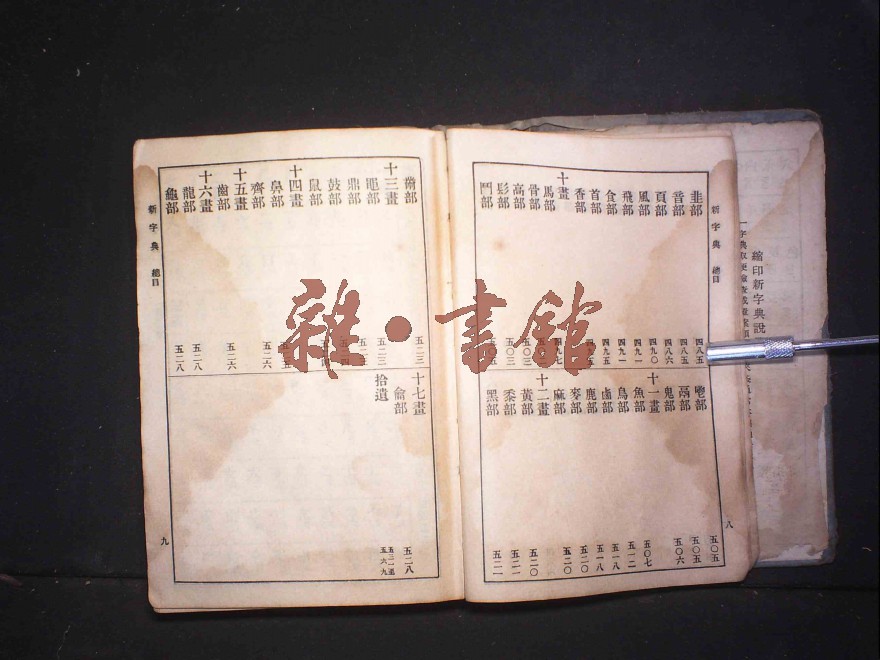 縮印新字典說
新字典 總目
八
韭部 四八五
音部 四八五
頁部 四八六
風部 四九〇
飛部 四九一
食部 四九一
首部 四九五
香部
十畫
馬部
骨部
高部
髟部 五〇三
鬥部
鬯部 五〇五
鬲部 五〇五
鬼部 五〇六
十一畫
魚部 五〇七
鳥部 五一二
鹵部 五一八
鹿部 五一八
麥部 五二〇
麻部 五二〇
十二畫
黃部 五二〇
黍部 五二一
黑部 五二一
黹部 五二三
十三畫
黽部 五二三
鼎部
鼓部
鼠部
十四畫
鼻部
齊部 五二六
十五畫
齒部 五二六
十六畫
龍部 五二八
龜部 五二八
十七畫
龠部 五二八
拾遺
新字典 總目
九
雜·書館